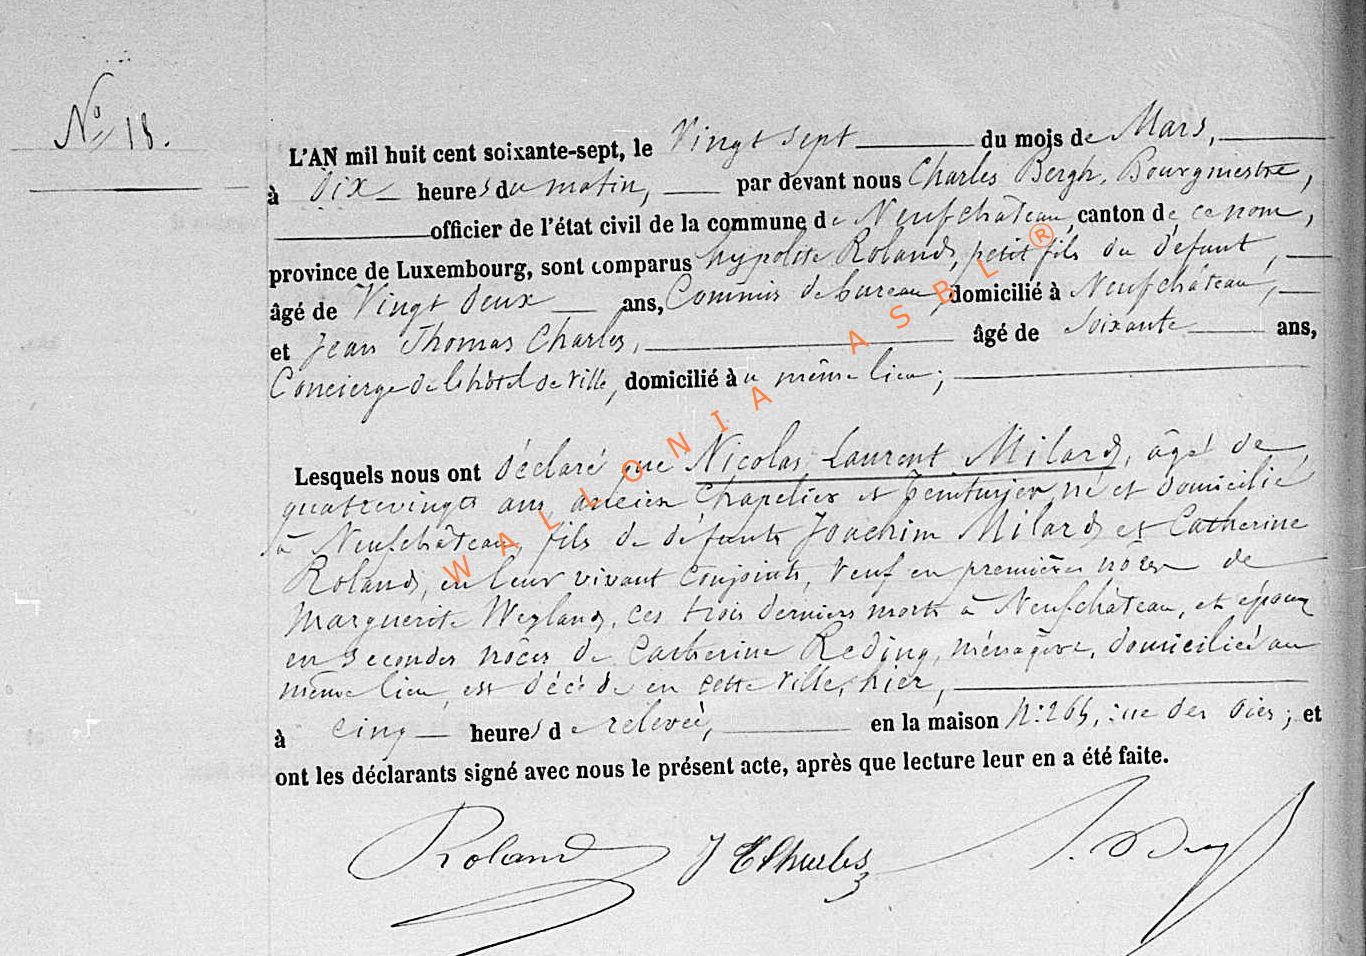 No 18.
L'AN mil huit cent soixante-sept, le Vingt sept du mois de Mars,
à Dix heures du matin, par devant nous Charles Bergh, Bourgmestre,
officier de l'état civil de la commune de Neufchâteau, canton de ce nom,
province de Luxembourg, sont comparus hypolite Roland, petit fils du défunt,
âgé de Vingt deux ans, Commis de bureau, domicilié à Neufchâteau,
et Jean Thomas Charles, âgé de Soixante ans,
Concierge de l'hôtel de Ville, domicilié à u même lieu;
Lesquels nous ont déclaré que Nicolas Laurent Milard, âgé de
quatrevingts ans, ancien Chapelier et né et domicilié
à Neufchâteau, fils de défunts Joachim Milard et Catherine
Roland, en leur vivant Conjoints, Veuf en premières nôces de
Marguerite Weyland, ces trois derniers morts à Neufchâteau, et époux
en secondes nôces de Catherine Reding, ménagère, domiciliée au
même lieu, est décédé en cette Ville, hier,
à Cinq heures de relevée, en la maison N: 265, rue des Oies; et
ont les déclarants signé avec nous le présent acte, après que lecture leur en a été faite.
Roland J T Charles
WALLONIA ASBL ®